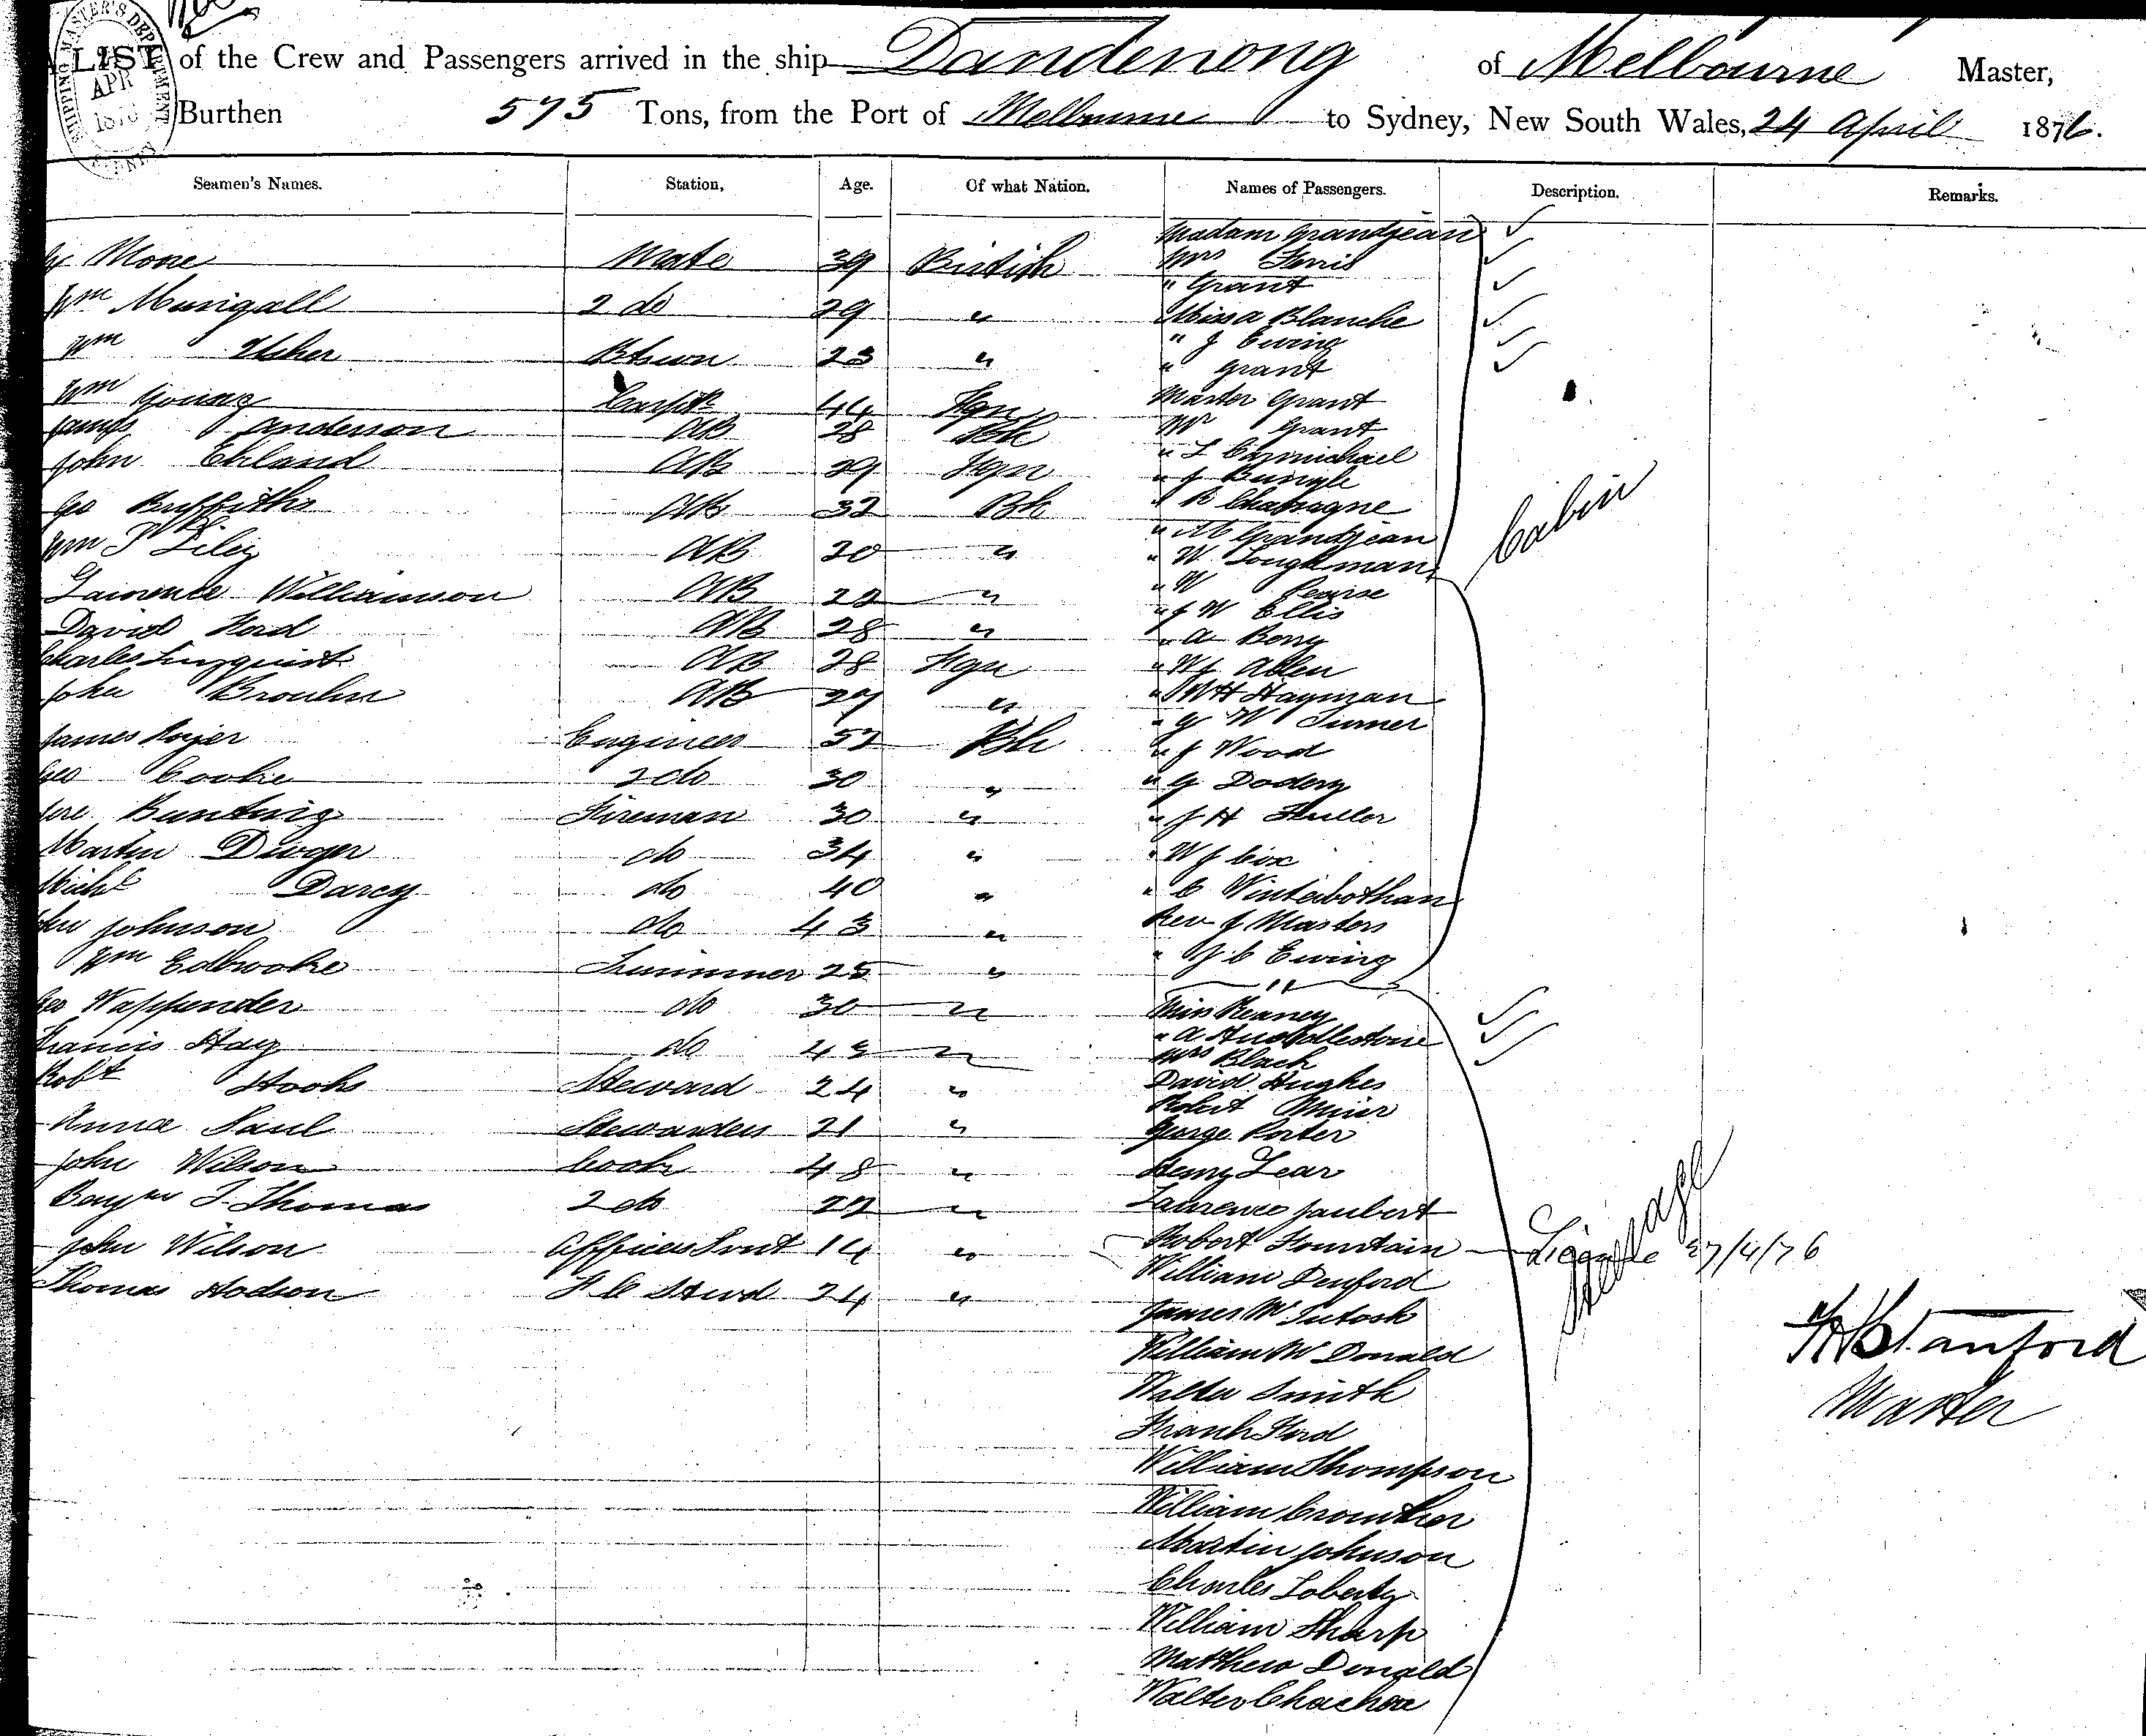 SHIPPING MASTER'S DEPARTMENT
APR
SYDNEY
LIST of the Crew and Passengers arrived in the ship Dandenong of Melbourne Master,
Burthen 575 Tons, from the Port of Melbourne to Sydney, New South Wales, 24 April 1876.
Seamen's Names. Station, Age. Of what Nation. Names of Passengers. Description. Remarks.
Mone Mate 39 British
Wm Mungall 2 do 29 "
Wm Usher Btswn 23 "
Wm Young Carptr 44 Fgn
James Anderson AB 28 Bh
John Ehland AB 29 Fgn
Geo Griffiths AB 32 Bh
Wm P Liley AB 20 "
Lawrence Williamson AB 22 "
David Ford AB 28 "
Charles Linzquist AB 28 Fgn
John AB 27 "
James Engineer 52 Bh
Geo Cooke 2 do 30 "
Bunting Fireman 30 "
Martin Dwyer do 34 "
Michl Darcy do 40 "
Johnson do 43 "
Wm Trimmer 25 "
Geo Wappender do 30 "
Francis Hay do 43 "
Robt Hooks Steward 24 "
Anna Paul Stewardess 21 "
John Wilson Cook 48 "
Benjn J. Thomas 2 do 22 "
John Wilson Officers Srvt 14 "
Thomas Hodson F C Stwd 24 "
Madam Grandjean
Mrs Ferris
" Grant
Miss a Blanche
" J Ewing
" Grant
Master Grant
Mr Grant
" L Carmichael
" J
" R Chamagne
" M Grandjean
" W Loughman
" W Pearse
" J W Ellis
" A Berry
" W J Allen
" W H Hayman
" G W Turner
" J Wood
" G Dodery
" J H Fuller
" W J Cox
" C Winterbotham
Rev J Masters
" J C Ewing
Cabin
"
Miss Kearney
" A Huddlestone
Mrs Black
David Hughes
Robert Minir
George Porter
Henry Lear
Laurence Jaubert
Robert Fountain 27/4/76
William Denford
James McIntosh
William McDonald
Walter Smith
Frank Ford
William Thompson
William Crowther
Martin Johnson
Charles Loberty
William Sharp
Matthew Donald
Walter
Steerage
Stanford
Master